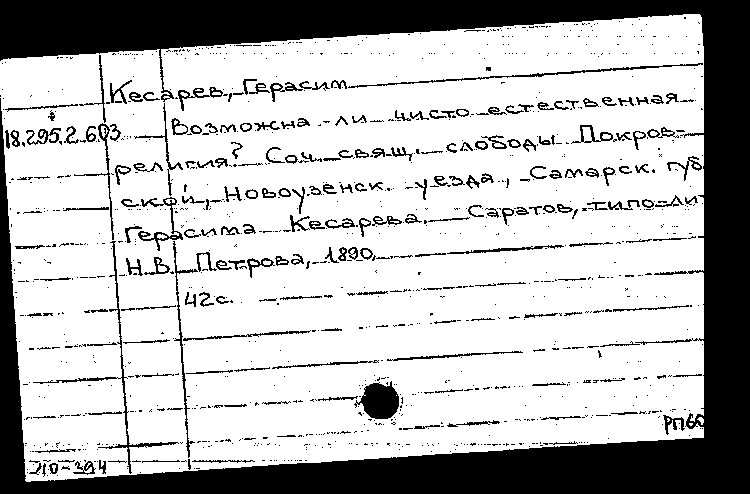 Кесарев, Герасим
18.295.2.603 Возможна ли чисто естественная
религия? Соч. свящ. слободы Покров-
ской, Новоузенск. уезда, Самарск. губ.
Герасима Кесарева. Саратов, типо-лит
Н.В. Петрова, 1890
42 с.
РП60
210-394